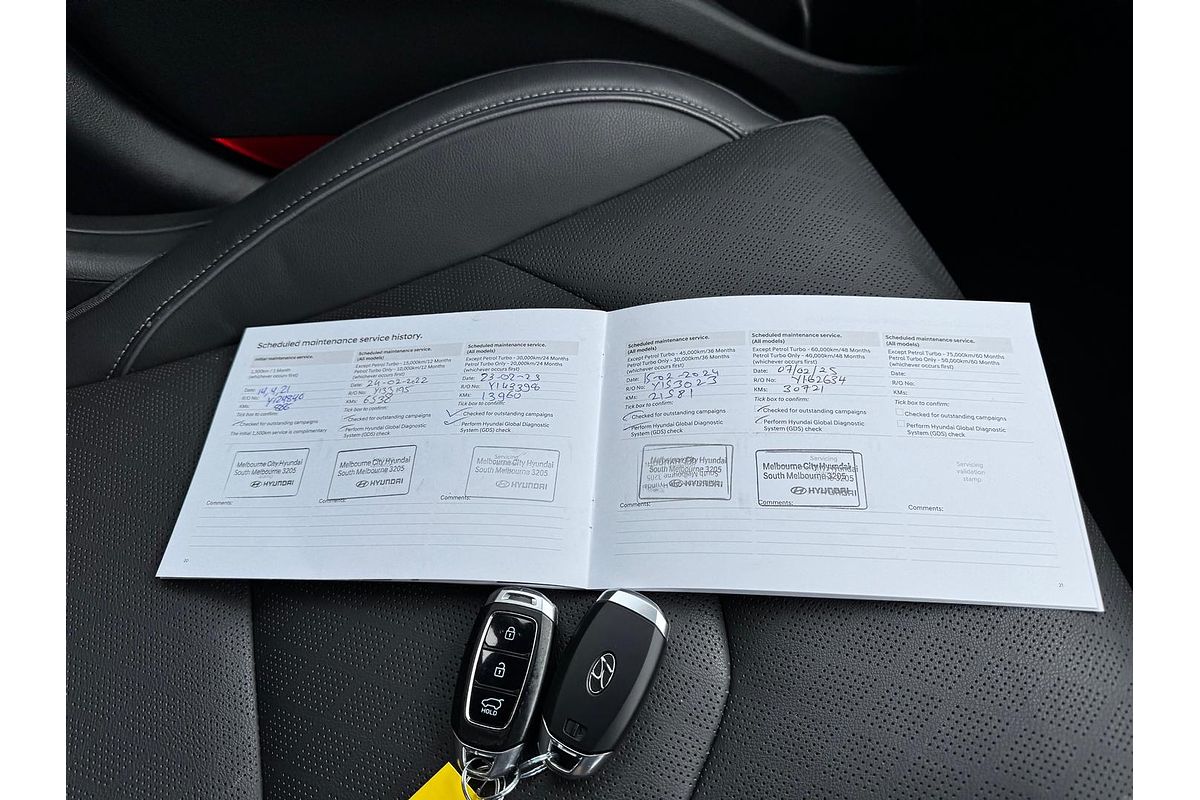 Scheduled maintenance service history.
Initial maintenance service.
1,500km / 1 Month
(whichever occurs first)
Date: 14.4.21
R/O No: Y124840
KMs: 886
Tick box to confirm:
Checked for outstanding campaigns
The initial 1,500km service is complimentary
Melbourne City Hyundai
South Melbourne 3205
HYUNDAI
Comments:
Scheduled maintenance service.
(All models)
Except Petrol Turbo - 15,000km/12 Months
Petrol Turbo Only - 10,000km/12 Months
(whichever occurs first)
Date: 24-02-2022
R/O No: Y133195
KMs: 6538
Tick box to confirm:
Checked for outstanding campaigns
Perform Hyundai Global Diagnostic
System (GDS) check
Melbourne City Hyundai
South Melbourne 3205
HYUNDAI
Comments:
Scheduled maintenance service.
(All models)
Except Petrol Turbo - 30,000km/24 Months
(whichever occurs first)
Date: 23-02-23
R/O No: Y143396
KMs: 13960
Tick box to confirm:
Checked for outstanding campaigns
Perform Hyundai Global Diagnostic
System (GDS) check
Servicing
Melbourne City Hyundai
South Melbourne 3205
HYUNDAI
Comments:
20
Scheduled maintenance service.
(All models)
Except Petrol Turbo - 45,000km/36 Months
Petrol Turbo Only - 30,000km/36 Months
(whichever occurs first)
Date: 15-02-2024
R/O No: Y153023
KMs: 21581
Tick box to confirm:
Checked for outstanding campaigns
Perform Hyundai Global Diagnostic
System (GDS) check
Melbourne City Hyundai
South Melbourne 3205
HYUNDAI
Comments:
Scheduled maintenance service.
(All models)
Except Petrol Turbo - 60,000km/48 Months
Petrol Turbo Only - 40,000km/48 Months
(whichever occurs first)
Date: 07/02/25
R/O No: Y162634
KMs: 30721
Tick box to confirm:
Checked for outstanding campaigns
Perform Hyundai Global Diagnostic
System (GDS) check
Servicing
Melbourne City Hyundai
South Melbourne 3205
HYUNDAI
Comments:
Scheduled maintenance service.
(All models)
Except Petrol Turbo - 75,000km/60 Months
Petrol Turbo Only - 50,000km/60 Months
(whichever occurs first)
Date:
R/O No:
KMs:
Tick box to confirm:
Checked for outstanding campaigns
Perform Hyundai Global Diagnostic
System (GDS) check
Servicing
validation
stamp
Comments:
21
HOLD